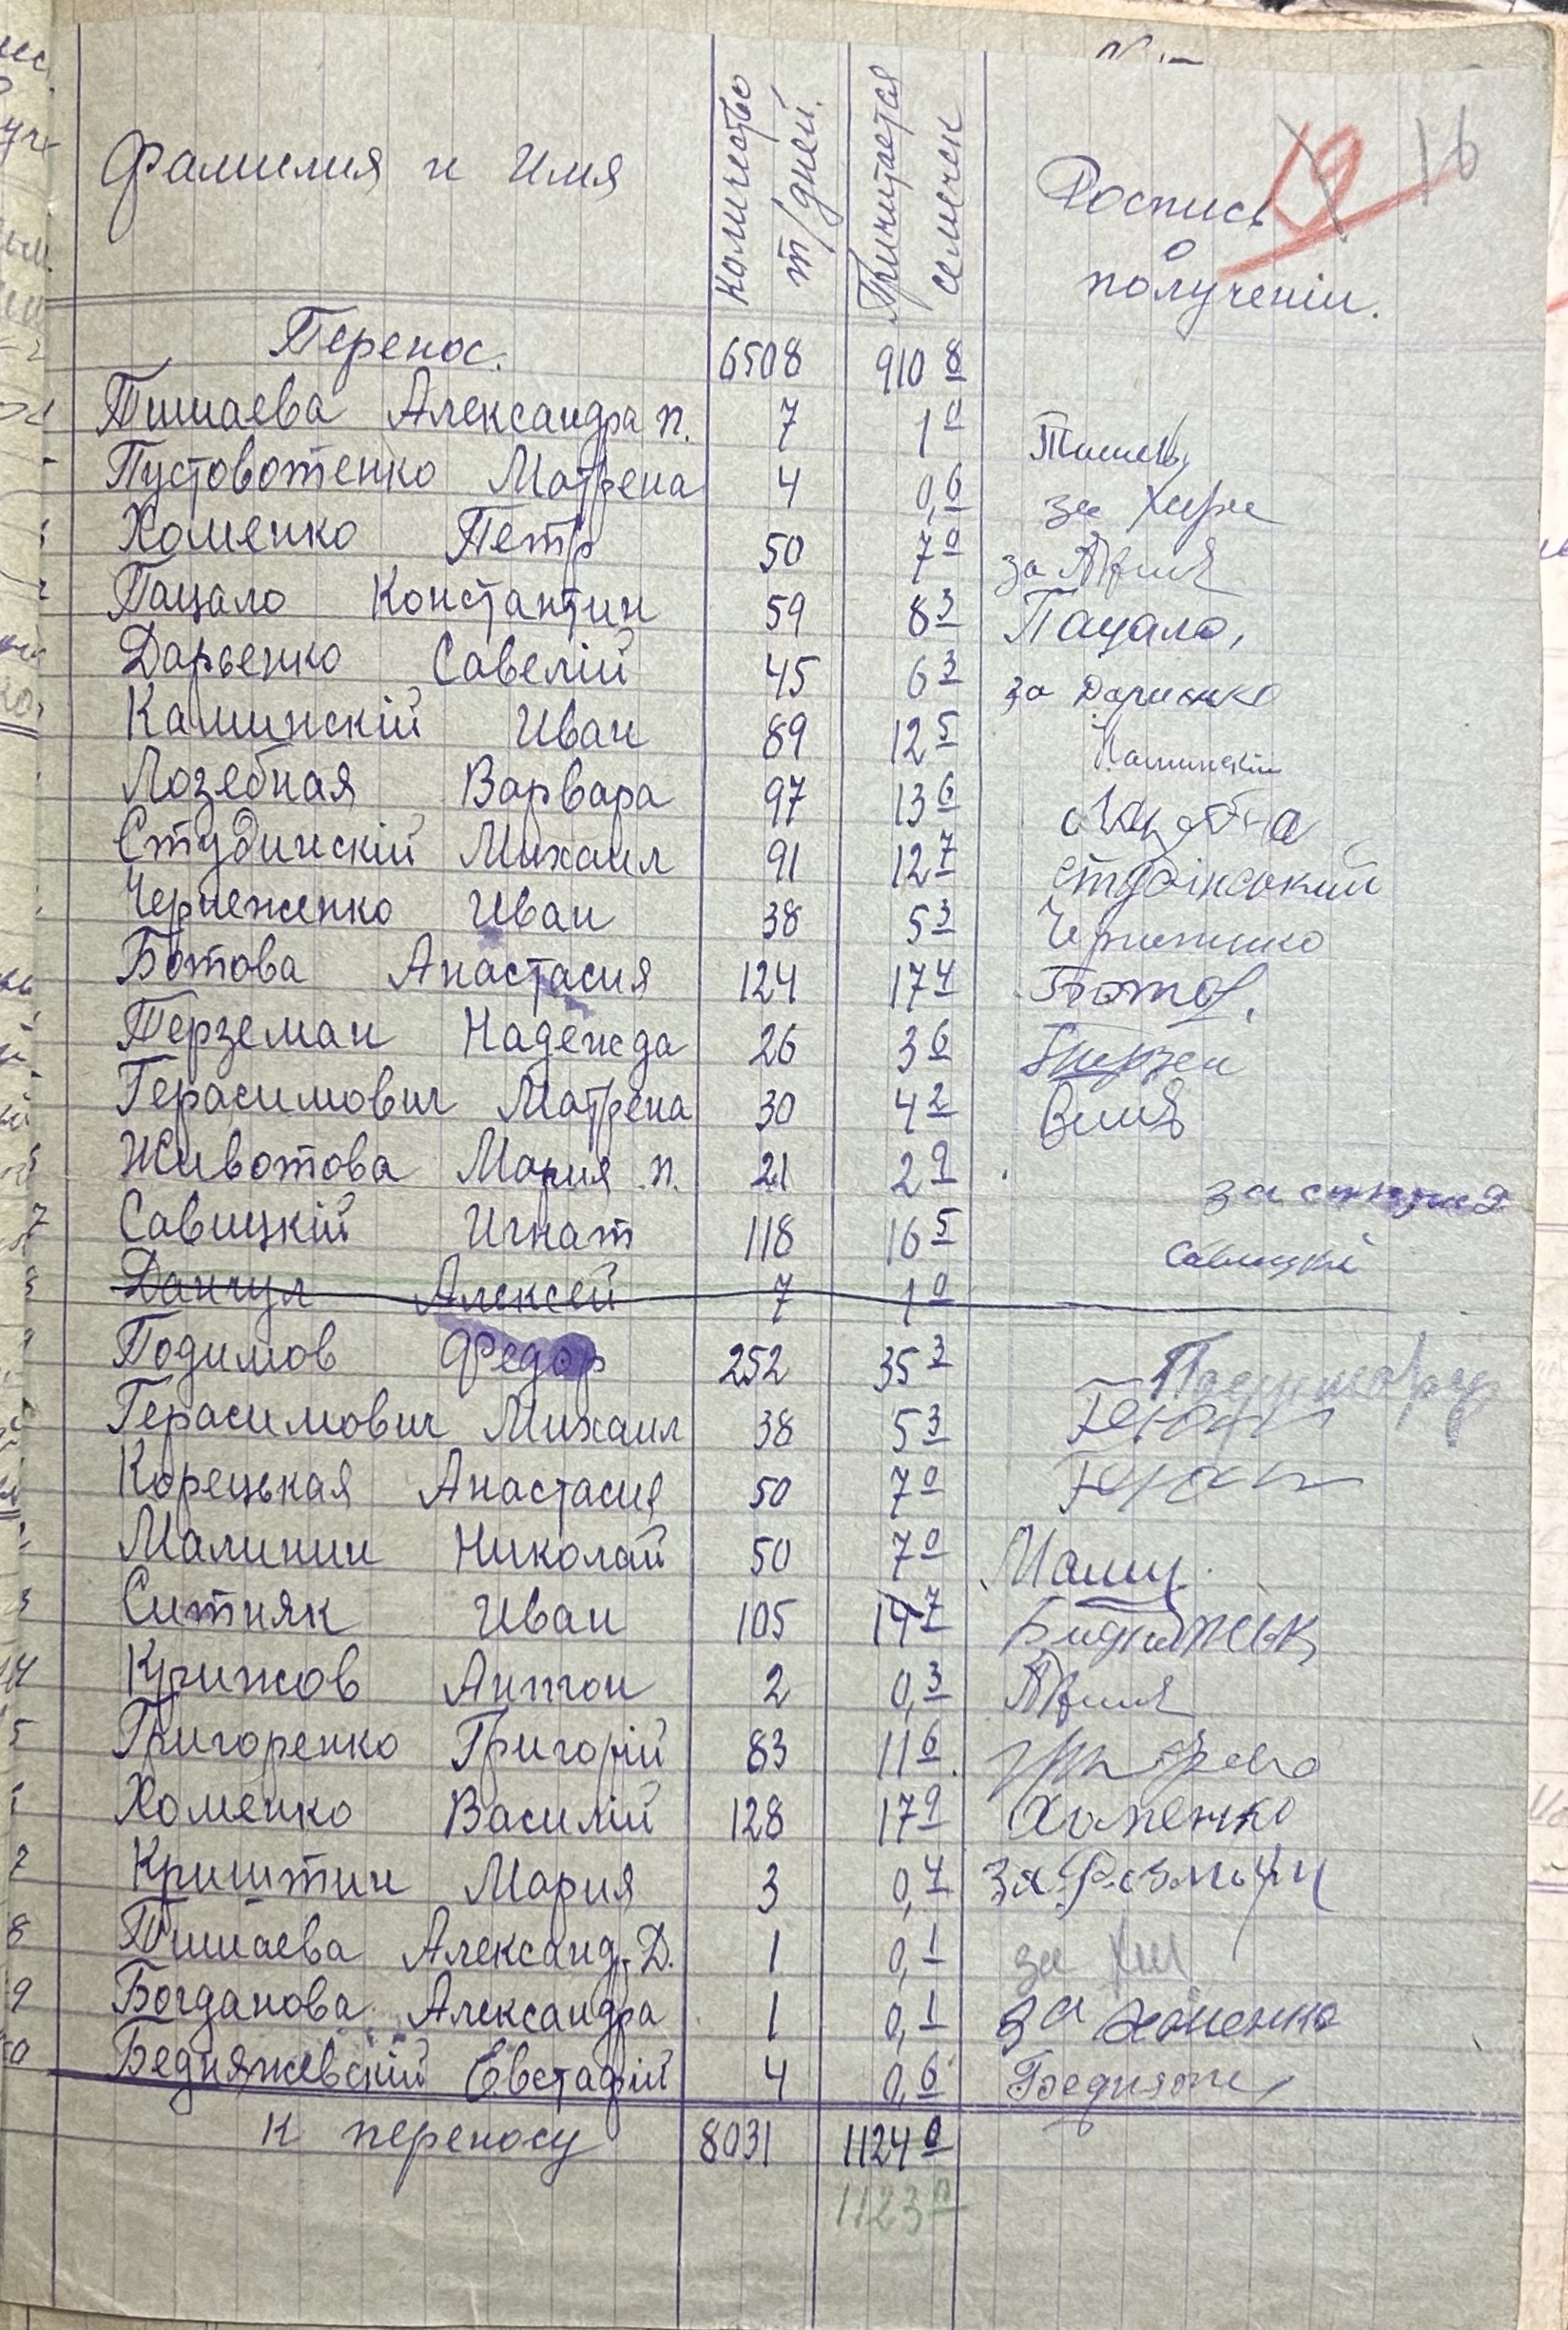 19 16
Фамилия и Имя Количество т/дней. Причитается семечек Роспись о полученiи.
Перенос. 6508 910 8
Тишаева Александра п. 7 1 0
Пустовотенко Матрена 4 0,6 за
Хоменко Петр 50 7 0 за
Пацало Константин 59 8 3 Пацало,
Дарьенко Савелiй 45 6 3 за Дариенко
Каминскiй Иван 89 12 5 Каминскiй
Лозебная Варвара 97 13 6
Студинскiй Михаил 91 12 7 Студінський
Чернеженко Иван 38 5 3
Ботова Анастасия 124 17 4 Ботов,
Терземан Надежда 26 3 6
Герасимович Матрена 30 4 2
Животова Мария п. 21 2 9 за
Савицкiй Игнат 118 16 5 Савицкi
Данчул Алексей 7 1 0
Подимов Федор 252 35 3
Герасимович Михаил 38 5 3 Герас
Корецькая Анастасия 50 7 0 Герас
Малинин Николай 50 7 0
Ситняк Иван 105 14 7
Крижов Антон 2 0,3
Григоренко Григорiй 83 11 6
Хоменко Василiй 128 17 9 Хоменко
Криштин Мария 3 0,4 за
Тишаева Александ. Д. 1 0,1 за
Богданова Александра 1 0,1 за Хоменко
Бедняжевскiй Евстафiй 4 0,6 Бедняж
к переносу 8031 1124 0
1123 0